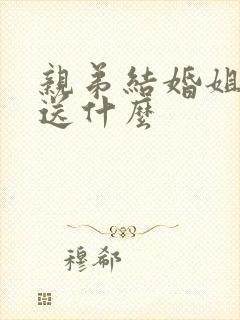 親弟結婚姐
送什麼
穆郗